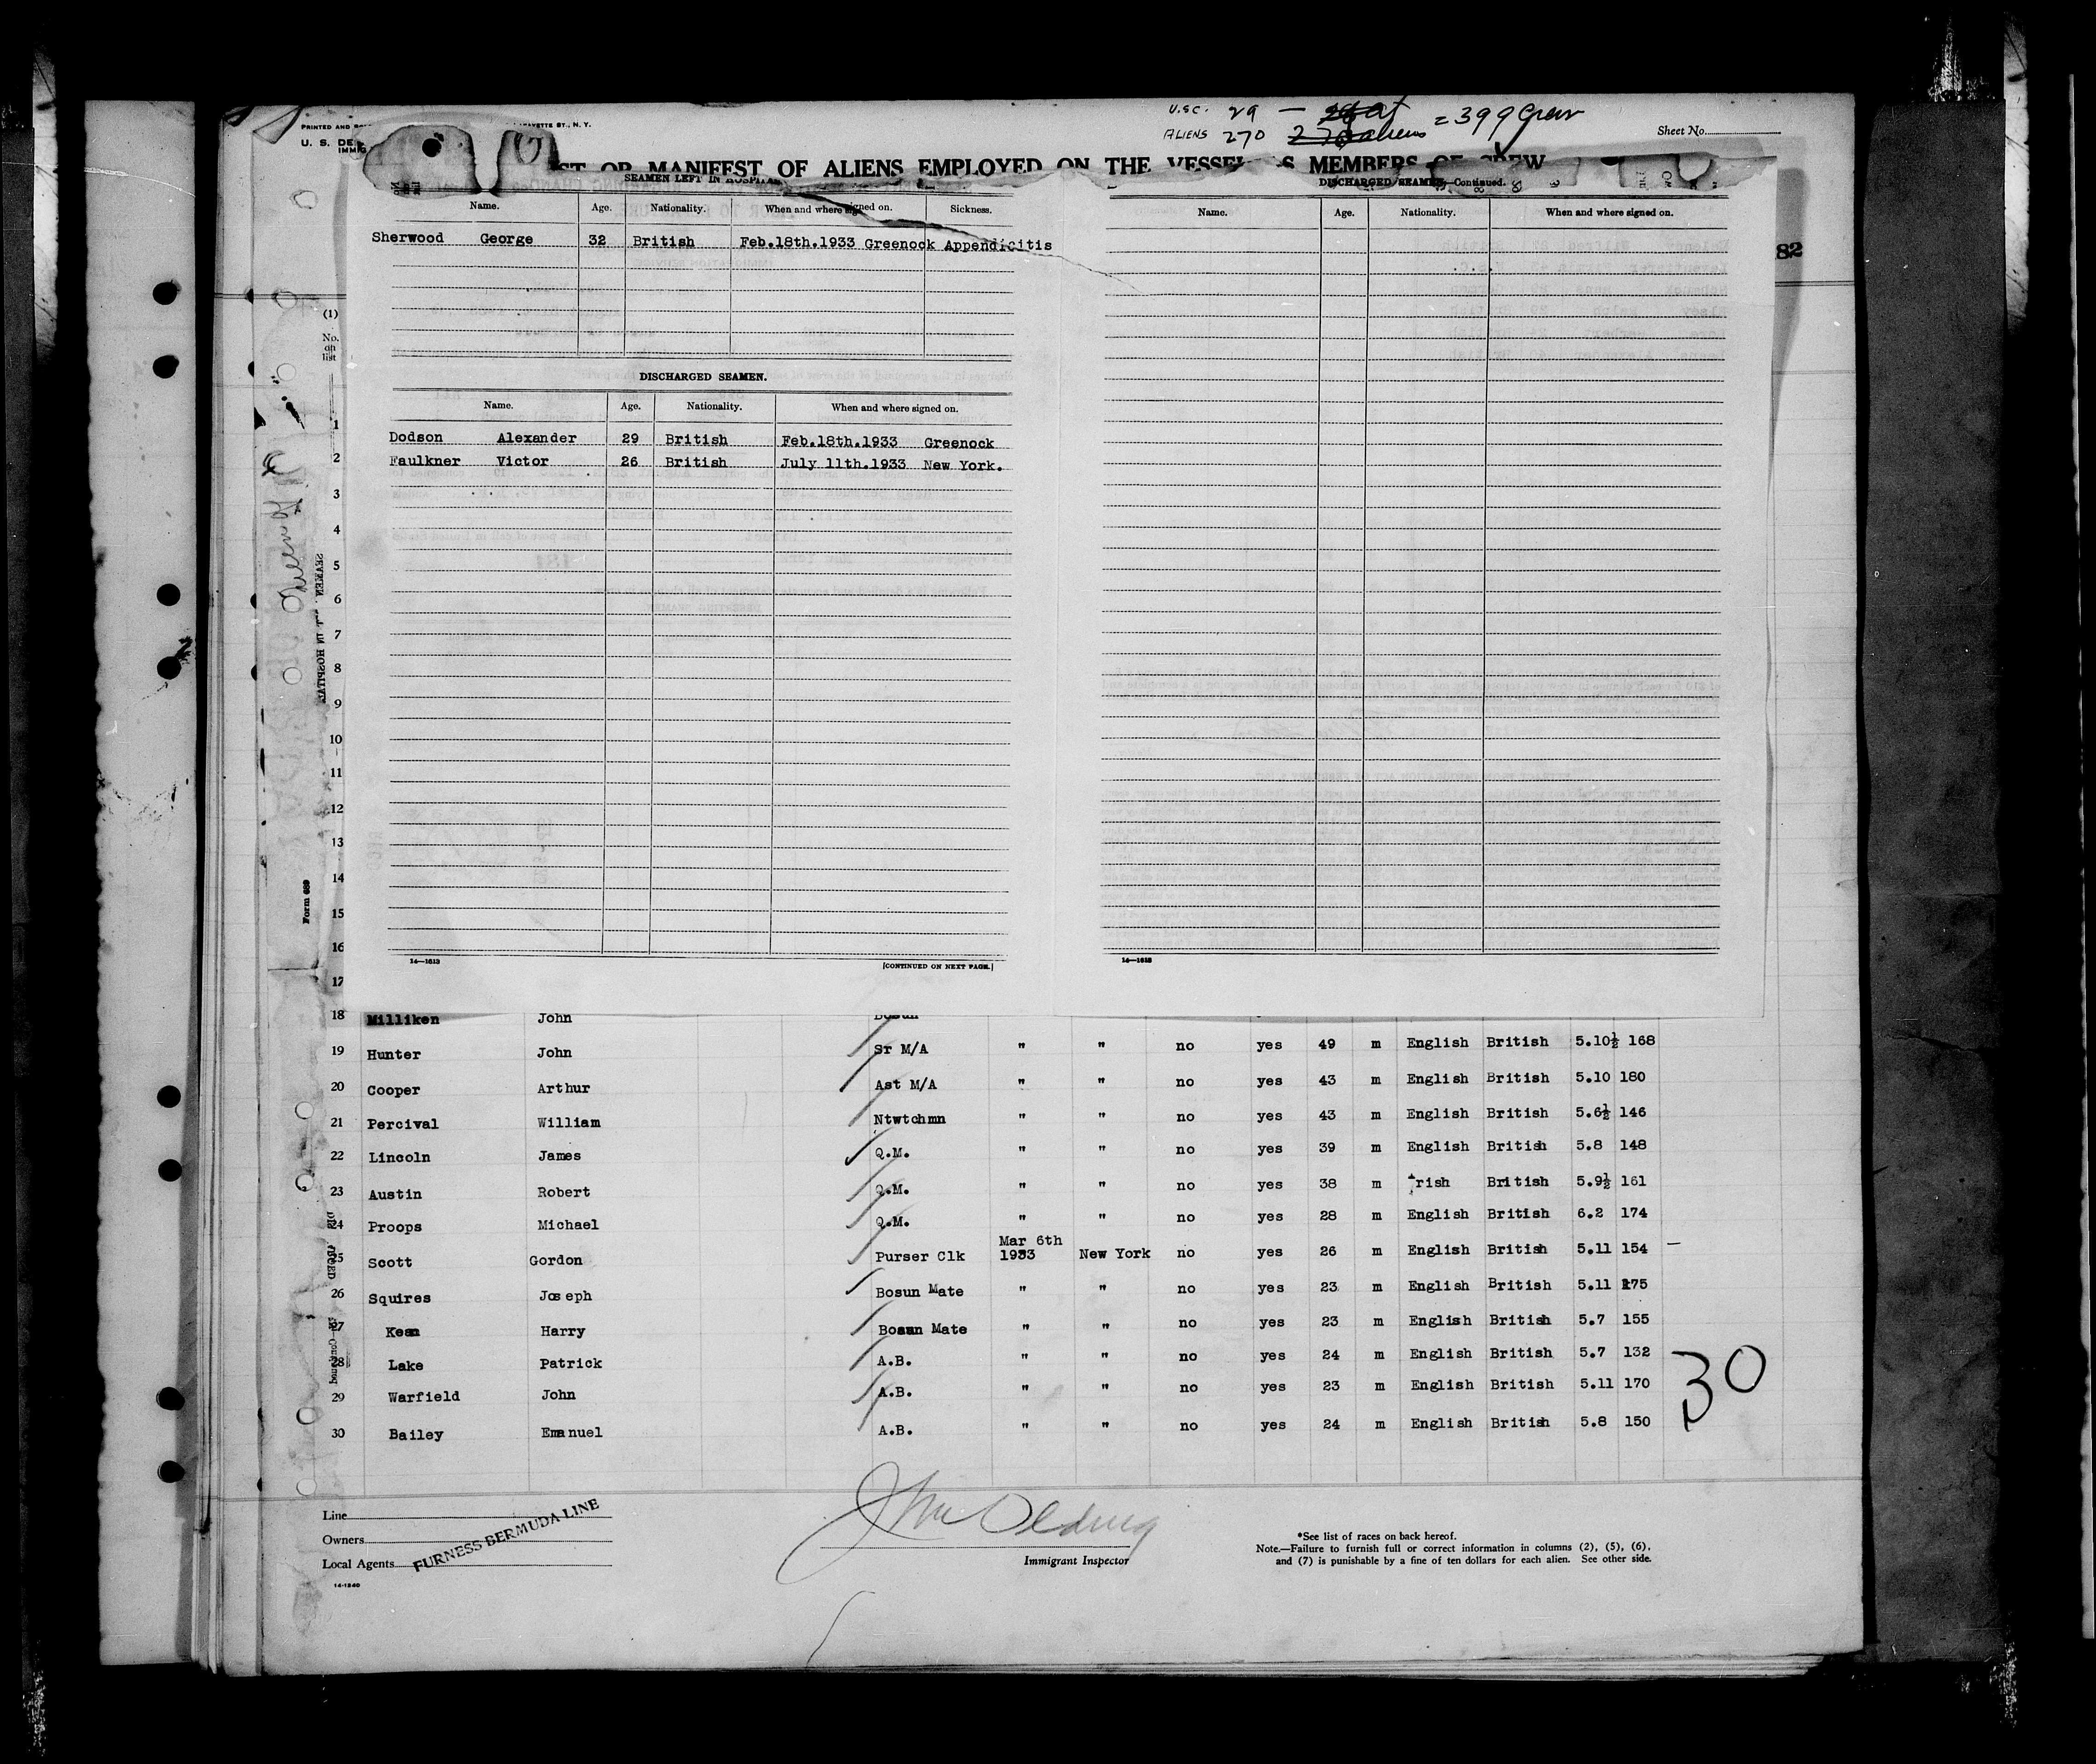 U.S.C. 29 —
ALIENS 270 270 aliens = 399 Crew
Sheet No.
PRINTED AND
LAFAYETTE ST., N. Y.
U. S. DE
IMMIG
ST OR MANIFEST OF ALIENS EMPLOYED ON THE VESSEL AS MEMBERS OF CREW
SEAMEN LEFT IN HOSPITAL
Name. Age. Nationality. When and where signed on. Sickness.
Sherwood George 32 British Feb.18th.1933 Greenock Appendicitis
DISCHARGED SEAMEN.
Name. Age. Nationality. When and where signed on.
Dodson Alexander 29 British Feb.18th.1933 Greenock
Faulkner Victor 26 British July 11th.1933 New York.
14—1613
[CONTINUED ON NEXT PAGE.]
DISCHARGED SEAMEN—Continued.
Name. Age. Nationality. When and where signed on.
14—1613
82
(1)
No.
on
list
1
2
3
4
5
6
7
8
9
10
11
12
13
14
15
16
17
Form 689
18 Milliken John Bosun
19 Hunter John Sr M/A " " no yes 49 m English British 5.10½ 168
20 Cooper Arthur Ast M/A " " no yes 43 m English British 5.10 180
21 Percival William Ntwtchmn " " no yes 43 m English British 5.6½ 146
22 Lincoln James Q.M. " " no yes 39 m English British 5.8 148
23 Austin Robert Q.M. " " no yes 38 m Irish British 5.9½ 161
24 Proops Michael Q.M. " " no yes 28 m English British 6.2 174
25 Scott Gordon Purser Clk Mar 6th 1933 New York no yes 26 m English British 5.11 154 —
26 Squires Joseph Bosun Mate " " no yes 23 m English British 5.11 175
27 Kean Harry Bosun Mate " " no yes 23 m English British 5.7 155
28 Lake Patrick A.B. " " no yes 24 m English British 5.7 132
29 Warfield John A.B. " " no yes 23 m English British 5.11 170
30 Bailey Emanuel A.B. " " no yes 24 m English British 5.8 150
30
Line
Owners
Local Agents
FURNESS BERMUDA LINE
14-1240
Immigrant Inspector
*See list of races on back hereof.
Note.—Failure to furnish full or correct information in columns (2), (5), (6),
and (7) is punishable by a fine of ten dollars for each alien. See other side.